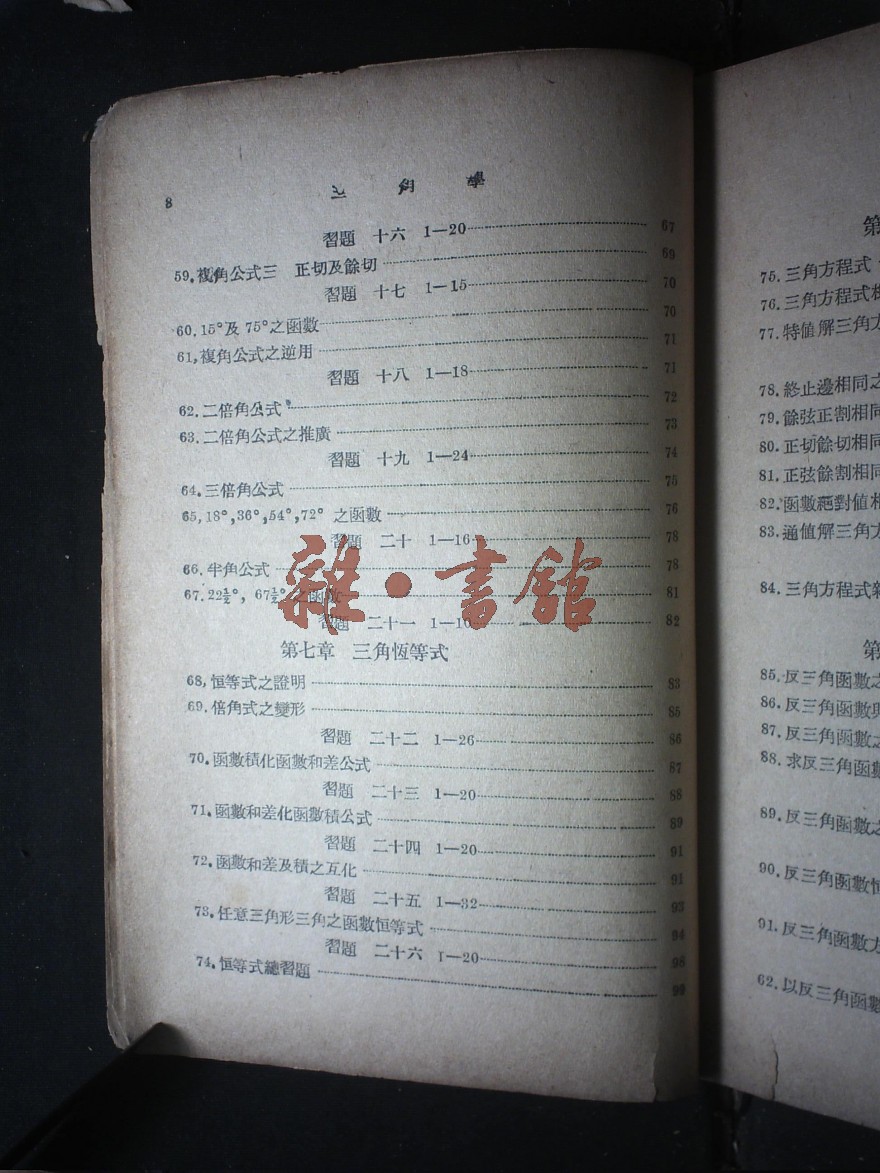 8 三角學
習題 十六 1—20 67
59.複角公式三 正切及餘切 69
習題 十七 1—15 70
60.15°及 75°之函數 70
61,複角公式之逆用 71
習題 十八 1—18 71
62.二倍角公式 72
63.二倍角公式之推廣 73
習題 十九 1—24 74
64.三倍角公式 75
65,18°,36°,54°,72° 之函數 76
習題 二十 1—16 78
66.半角公式 78
67.22½°, 67½°之函數 81
習題 二十一 1—10 82
第七章 三角恆等式
68,恒等式之證明 83
69.倍角式之變形 85
習題 二十二 1—26 86
70.函數積化函數和差公式 87
習題 二十三 1—20 88
71.函數和差化函數積公式 89
習題 二十四 1—20 91
72.函數和差及積之互化 91
習題 二十五 1—32 93
73.任意三角形三角之函數恒等式 94
習題 二十六 1—20 98
74.恒等式總習題 99
雜·書館
第
75.三角方程式
76.三角方程式
77.特值解三角方
78.終止邊相同之
79.餘弦正割相同
80.正切餘切相同
81.正弦餘割相同
82.函數絕對值相
83.通值解三角方
84.三角方程式
第
85.反三角函數之
86.反三角函數與
87.反三角函數之
88.求反三角函數
89.反三角函數之
90.反三角函數恒
91.反三角函數方
62.以反三角函數